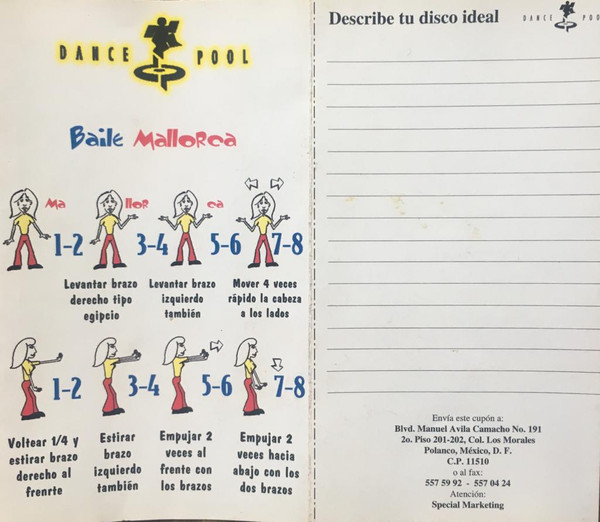 DANCE POOL
Baile Mallorca
Ma llor ca
1-2 3-4 5-6 7-8
Levantar brazo
derecho tipo
egipcio
Levantar brazo
izquierdo
también
Mover 4 veces
rápido la cabeza
a los lados
1-2 3-4 5-6 7-8
Voltear 1/4 y
estirar brazo
derecho al
frenrte
Estirar
brazo
izquierdo
también
Empujar 2
veces al
frente con
los brazos
Empujar 2
veces hacia
abajo con los
dos brazos
Describe tu disco ideal
DANCE POO
Envía este cupón a:
Blvd. Manuel Avila Camacho No. 191
2o. Piso 201-202, Col. Los Morales
Polanco, México, D. F.
C.P. 11510
o al fax:
557 59 92 - 557 04 24
Atención:
Special Marketing